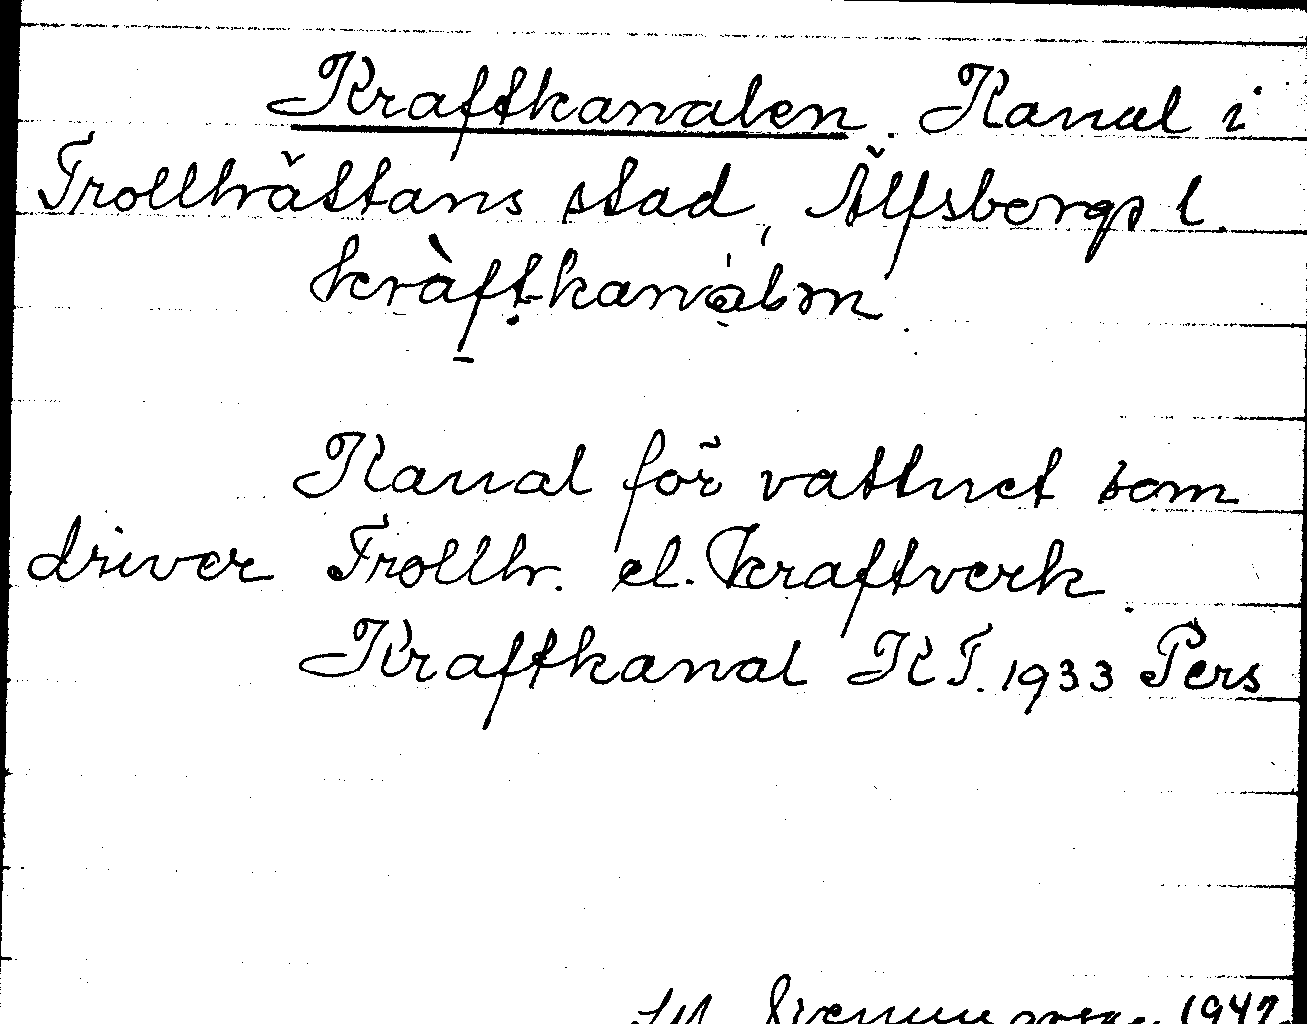 Kraftkanalen. Kanal i
Trollhättans stad, Älfsborgs l.
Kanal för vattnet som
driver Trollh. el. kraftverk.
Kraftkanal KT. 1933 Pers
1947